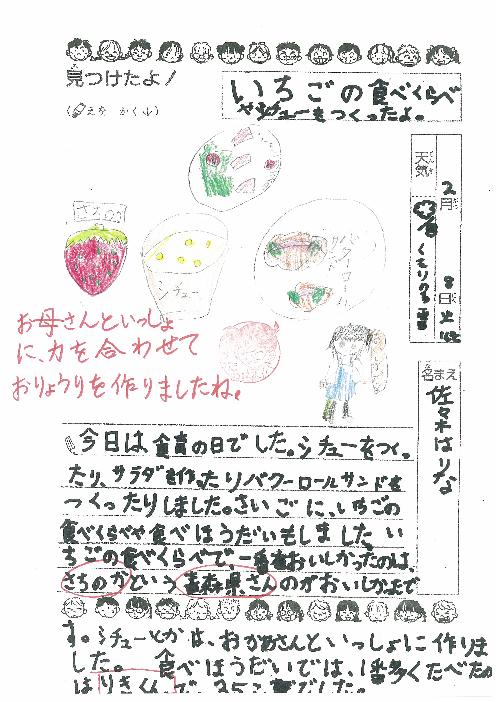 見つけたよ!
いちごの食べくらべ
やシチューをつくったよ。
(えを かく↓)
天気
くもりのち雪
2月
8日火
名まえ
佐々木はりな
さちのか
シチュー
バターロール
サンド
お母さんといっしょ
に、力を合わせて
おりょうりを作りましたね。
今日は、食育の日でした。シチューをつく。
たり、サラダを作ったりバターロールサンドを
つくったりしました。さいごに、いちごの
食べくらべや食べほうだいもしました い
ちごの食べくらべで、一番おいしかったのは、
さちのかという 青森県さんのがおいしかったで
す。シチューとかは、おかあさんといっしょに作りま
した。 食べほうだいでは、1番多くたべたの
はりきくんで、35こ でした。